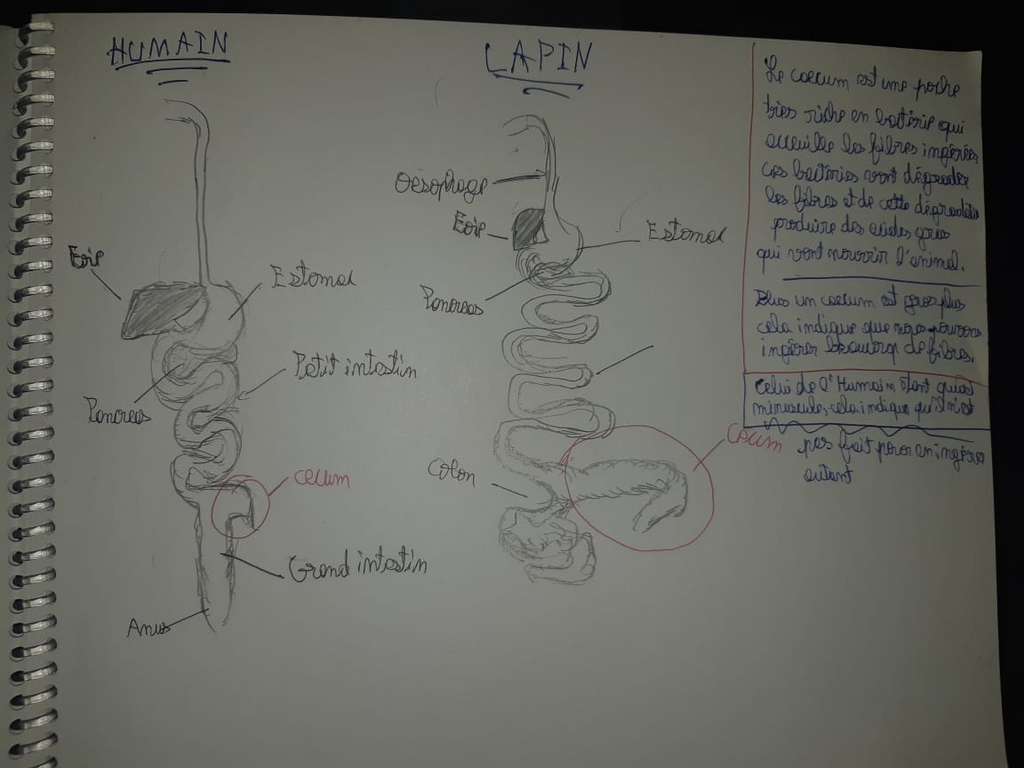 HUMAIN
LAPIN
Foie
Estomac
Petit intestin
Pancreas
cecum
Grand intestin
Anus
Oèsophage
Foie
Estomac
Pancreas
Colon
Cecum
Le caecum est une poche
très riche en bactérie qui
acueille les fibres ingérées
ces bactéries vont dégrader
les fibres et de cette dégradation
produire des acides gras
qui vont nourrir l'animal.
Plus un caecum est gros plus
cela indique que nous pouvons
ingérer beaucoup de fibres.
Celui de l'Humain étant quasi
minuscule, cela indique qu'il n'est
pas fait pour en ingérer
autant